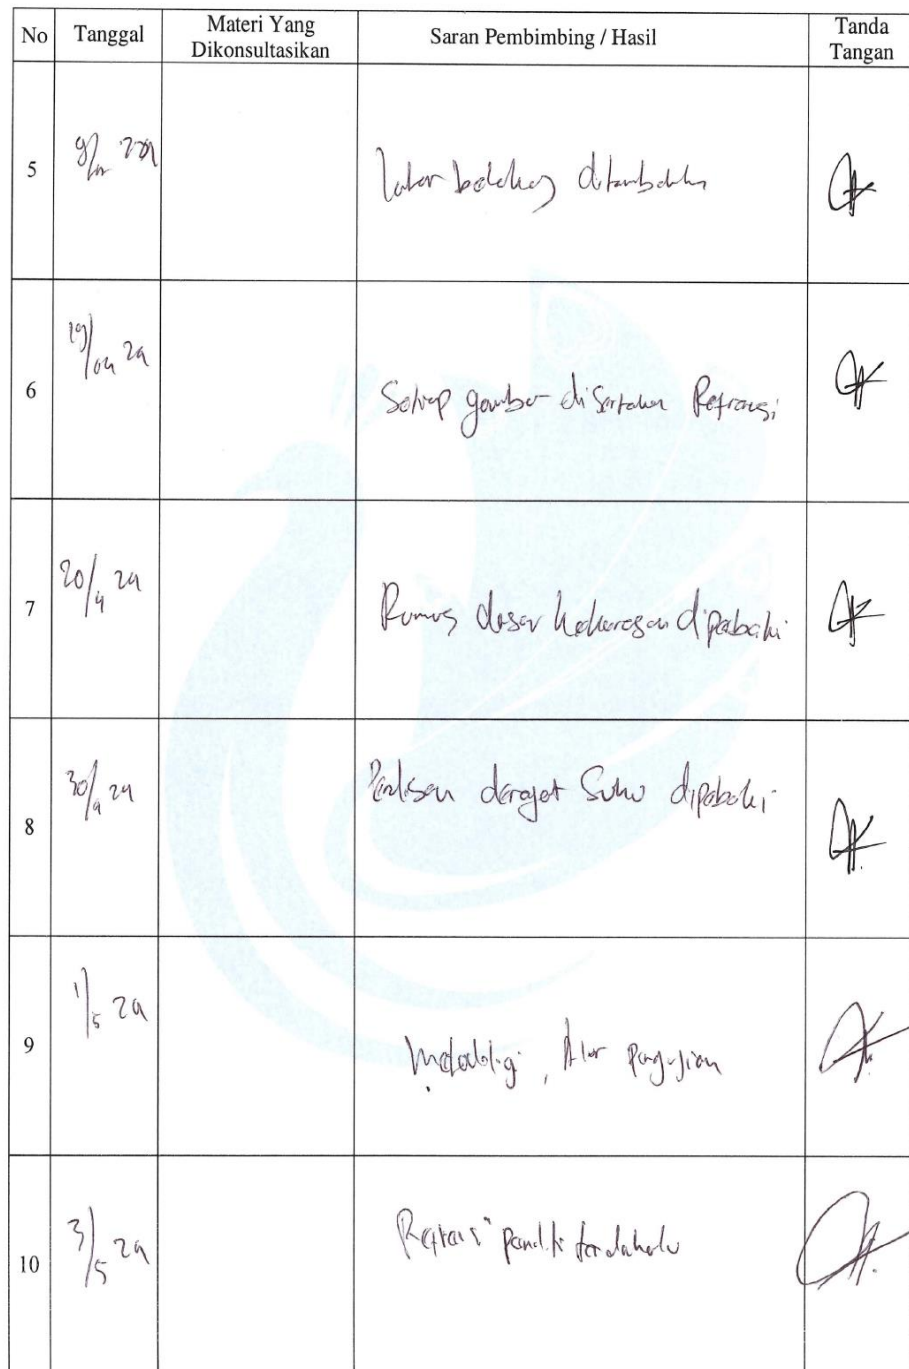 No Tanggal Materi Yang Dikonsultasikan Saran Pembimbing / Hasil Tanda Tangan
5 latar belakang ditambahkan
6 19/04 24 Setiap gambar disertakan Refrensi
7 20/4 24 Rumus dasar kekerasan diperbaiki
8 30/4 24 Penulisan derajat Suhu diperbaiki
9 1/5 24 Metodologi, Alur pengujian
10 3/5 24 Refrensi peneliti terdahulu